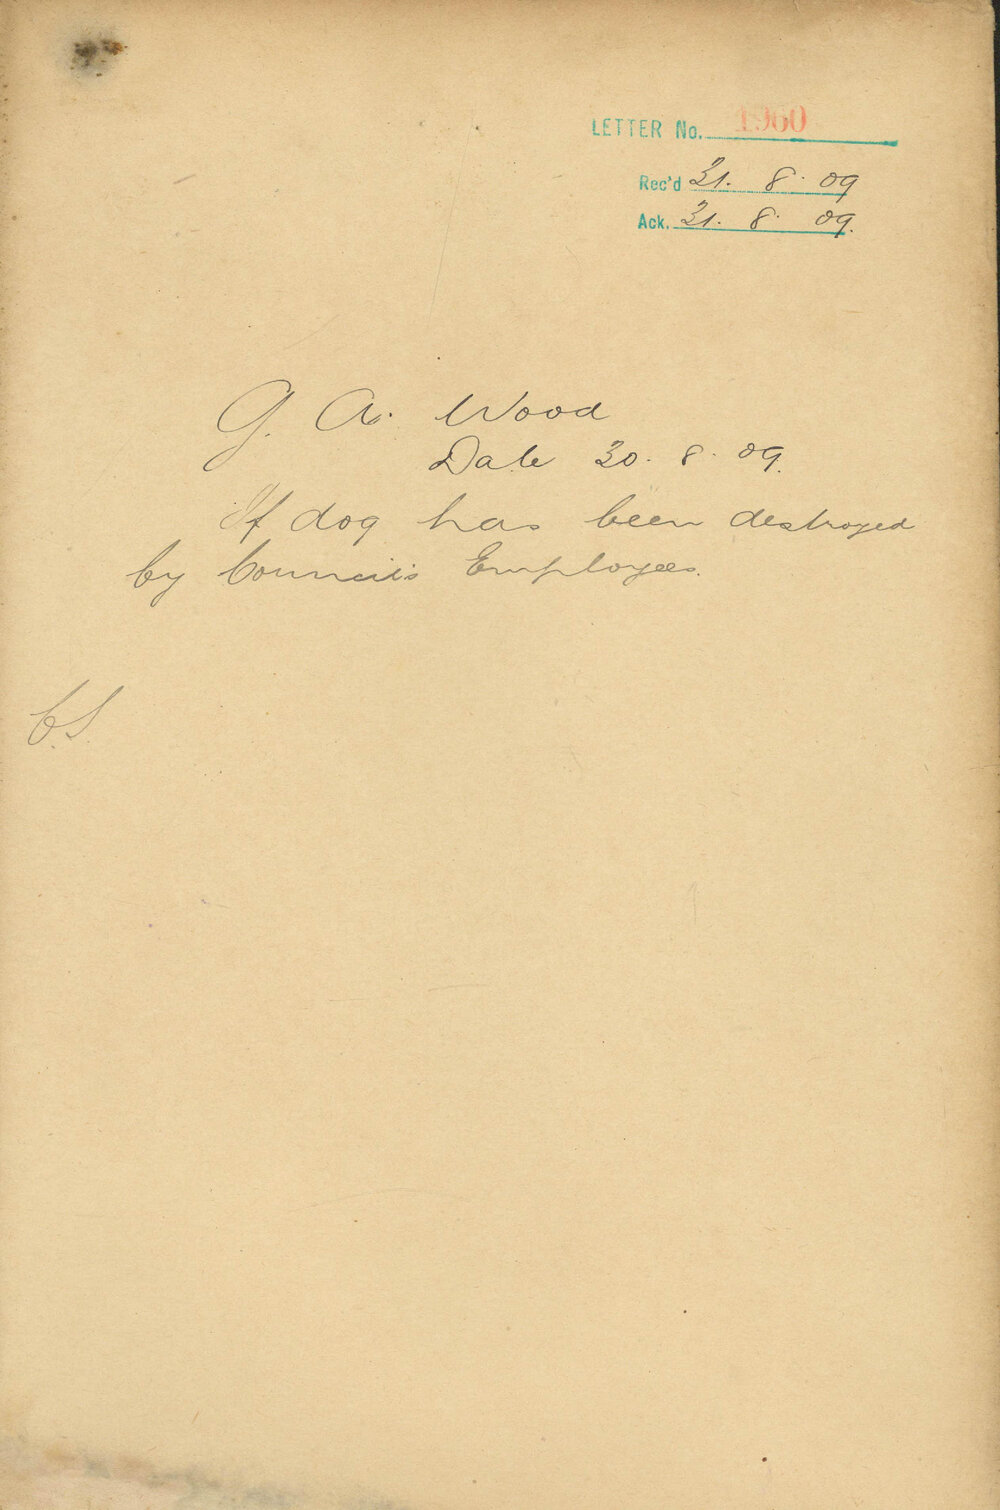 LETTER No. 1960
Rec'd 31. 8. 09
Ack. 31. 8. 09.
G. A. Wood
Date 30. 8. 09.
If dog has been destroyed
by Council's Employees.
C.S.